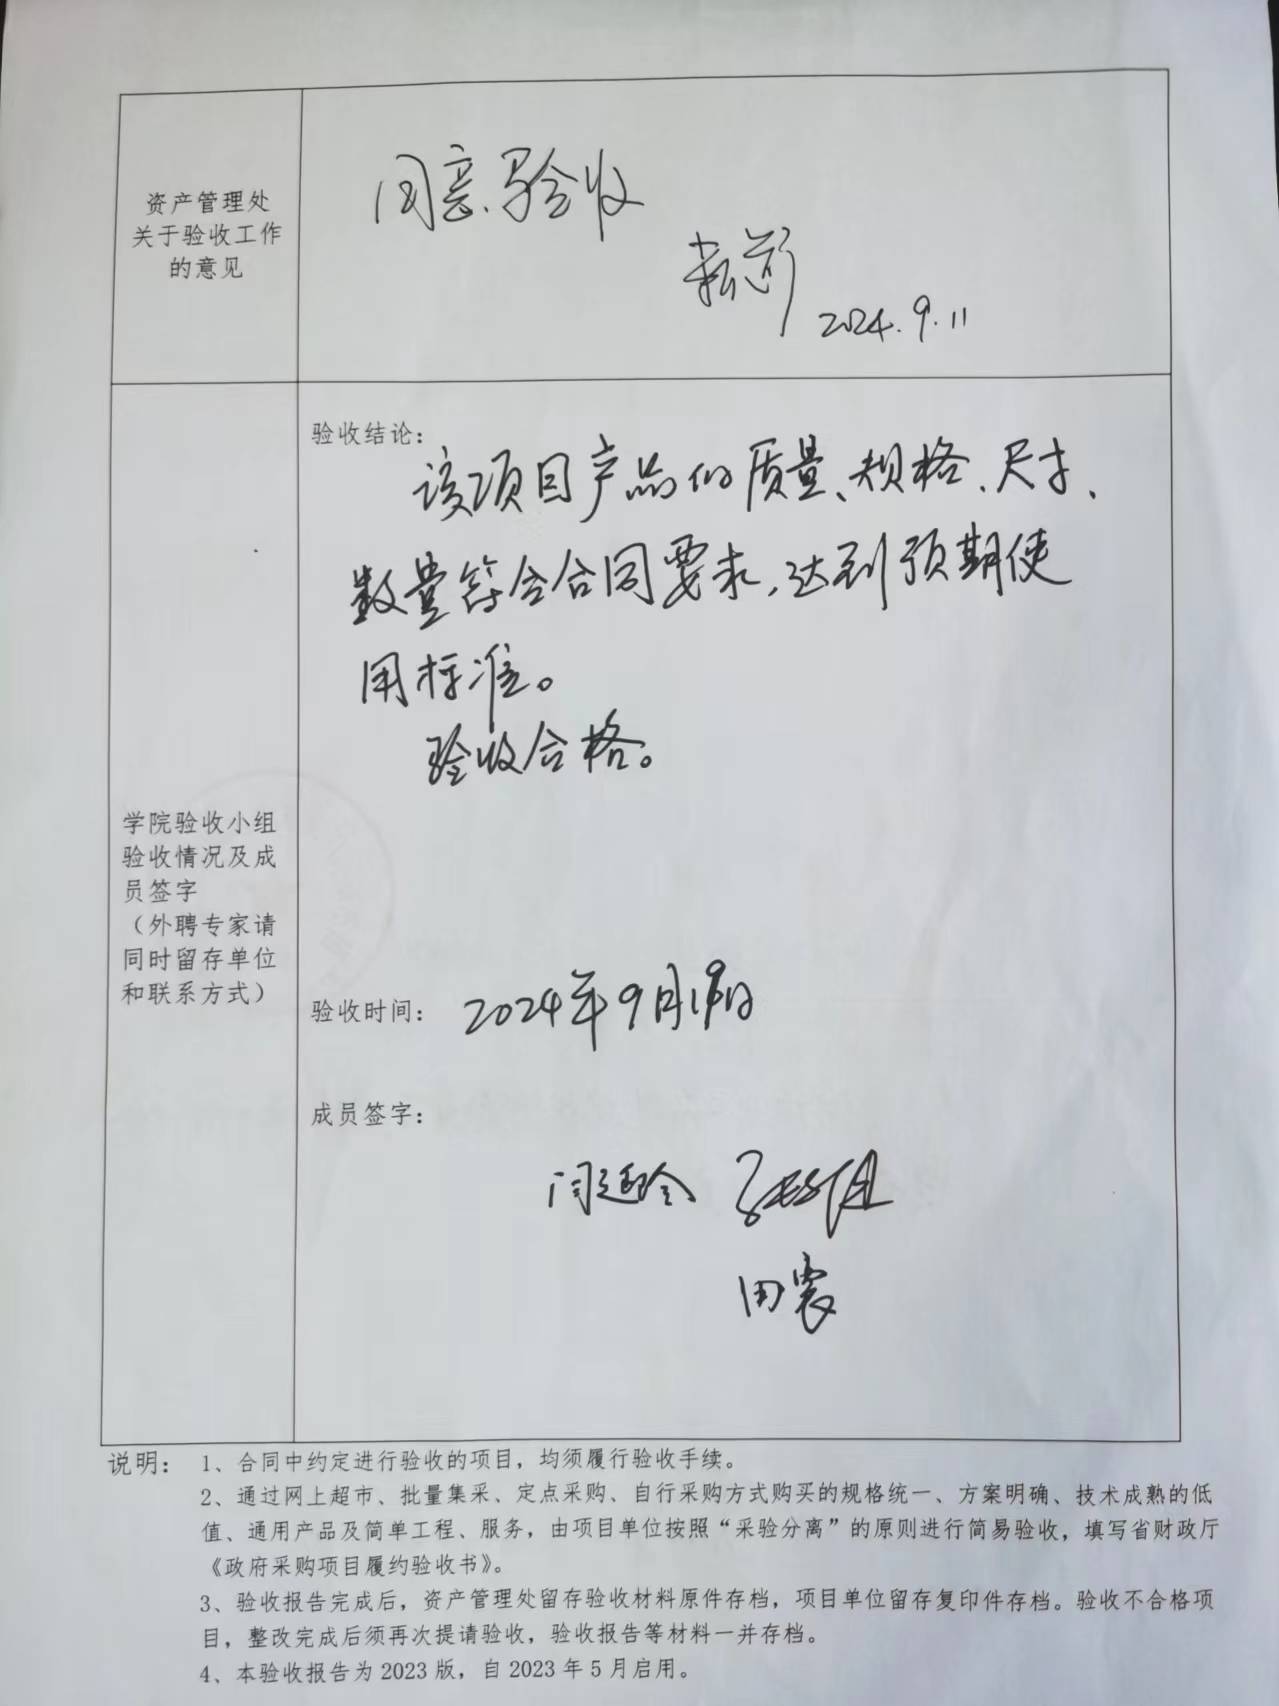 资产管理处
关于验收工作
的意见
同意验收
2024.9.11
验收结论：
该项目产品的质量、规格、尺寸、
数量符合合同要求，达到预期使
用标准。
验收合格。
学院验收小组
验收情况及成
员签字
（外聘专家请
同时留存单位
和联系方式）
验收时间：2024年9月19日
成员签字：
田震
说明：1、合同中约定进行验收的项目，均须履行验收手续。
2、通过网上超市、批量集采、定点采购、自行采购方式购买的规格统一、方案明确、技术成熟的低
值、通用产品及简单工程、服务，由项目单位按照“采验分离”的原则进行简易验收，填写省财政厅
《政府采购项目履约验收书》。
3、验收报告完成后，资产管理处留存验收材料原件存档，项目单位留存复印件存档。验收不合格项
目，整改完成后须再次提请验收，验收报告等材料一并存档。
4、本验收报告为2023版，自2023年5月启用。